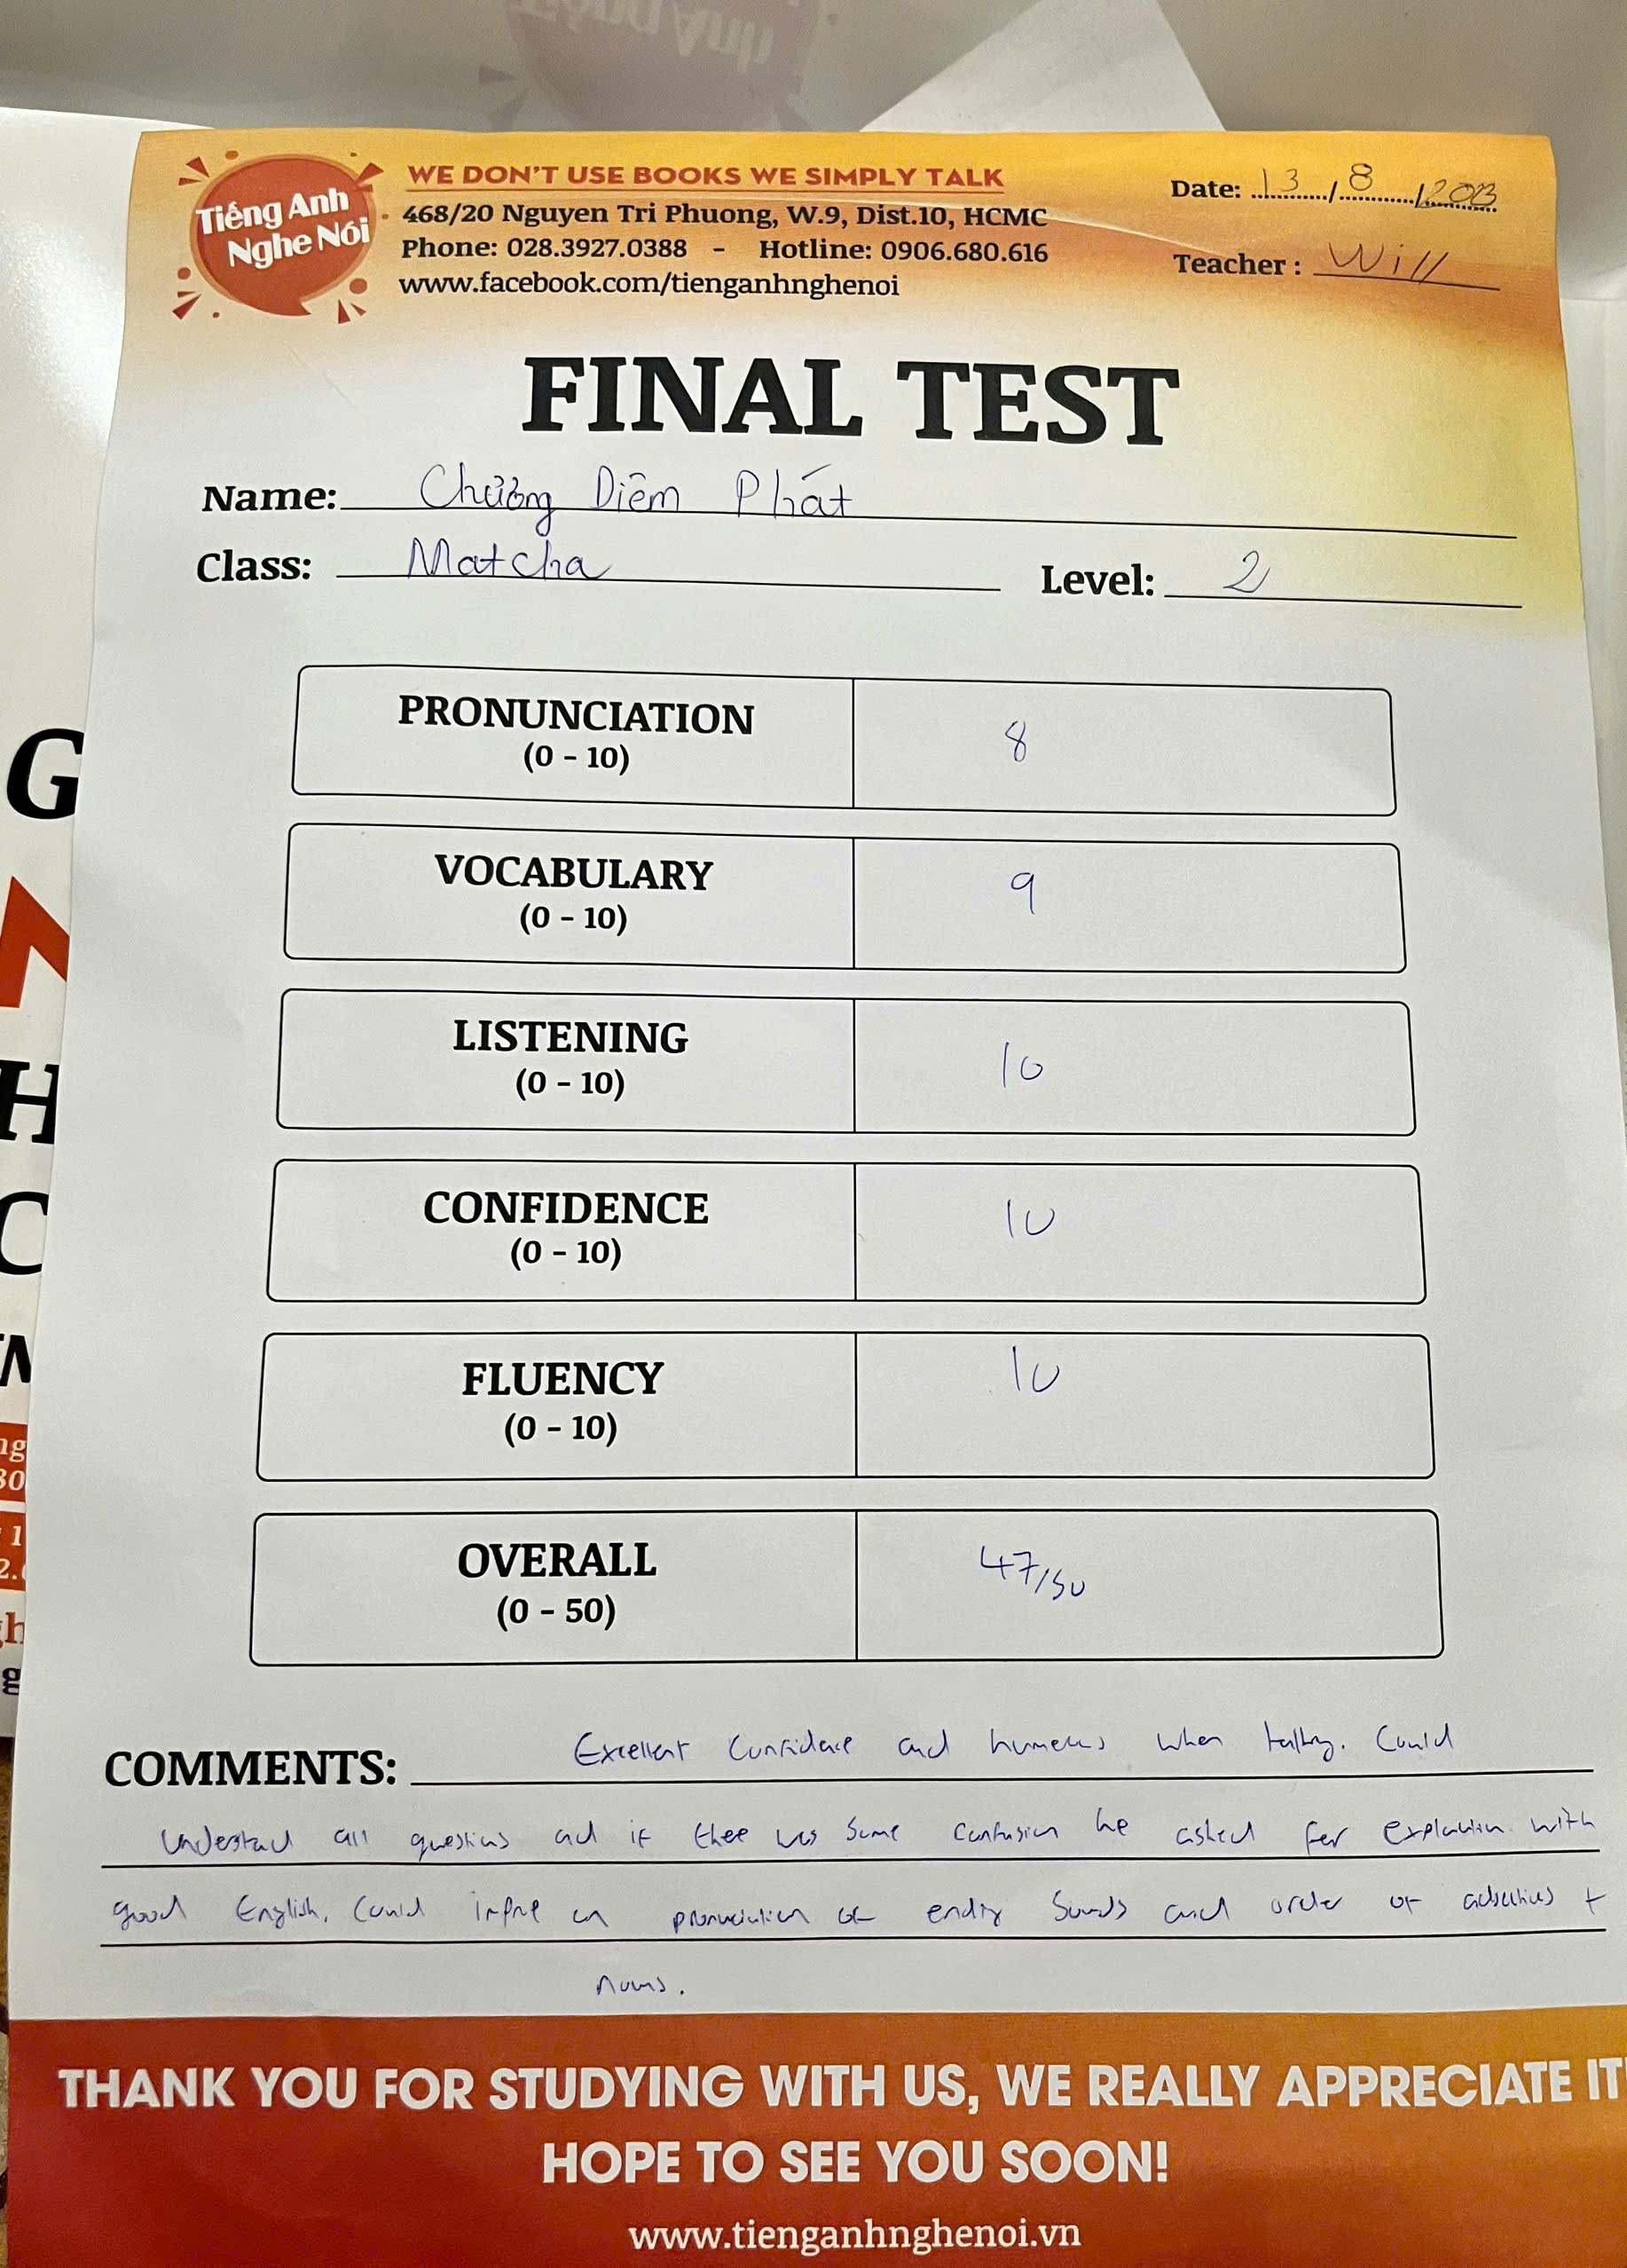 Tiếng Anh
Nghe Nói
WE DON'T USE BOOKS WE SIMPLY TALK
468/20 Nguyen Tri Phuong, W.9, Dist.10, HCMC
Phone: 028.3927.0388 - Hotline: 0906.680.616
www.facebook.com/tienganhnghenoi
Date: 13/8/2023
Teacher: Will
FINAL TEST
Name: Chưởng Diêm Phát
Class: Matcha Level: 2
PRONUNCIATION
(0 - 10)
8
VOCABULARY
(0 - 10)
9
LISTENING
(0 - 10)
10
CONFIDENCE
(0 - 10)
10
FLUENCY
(0 - 10)
10
OVERALL
(0 - 50)
47/50
COMMENTS: Excellent confidence and humerus when talking. Could
understand all questions and if there was some confusion he asked for explanation with
good English. Could improve on pronunciation of ending sounds and order of adjectives +
nouns.
THANK YOU FOR STUDYING WITH US, WE REALLY APPRECIATE IT
HOPE TO SEE YOU SOON!
www.tienganhnghenoi.vn
G
H
C